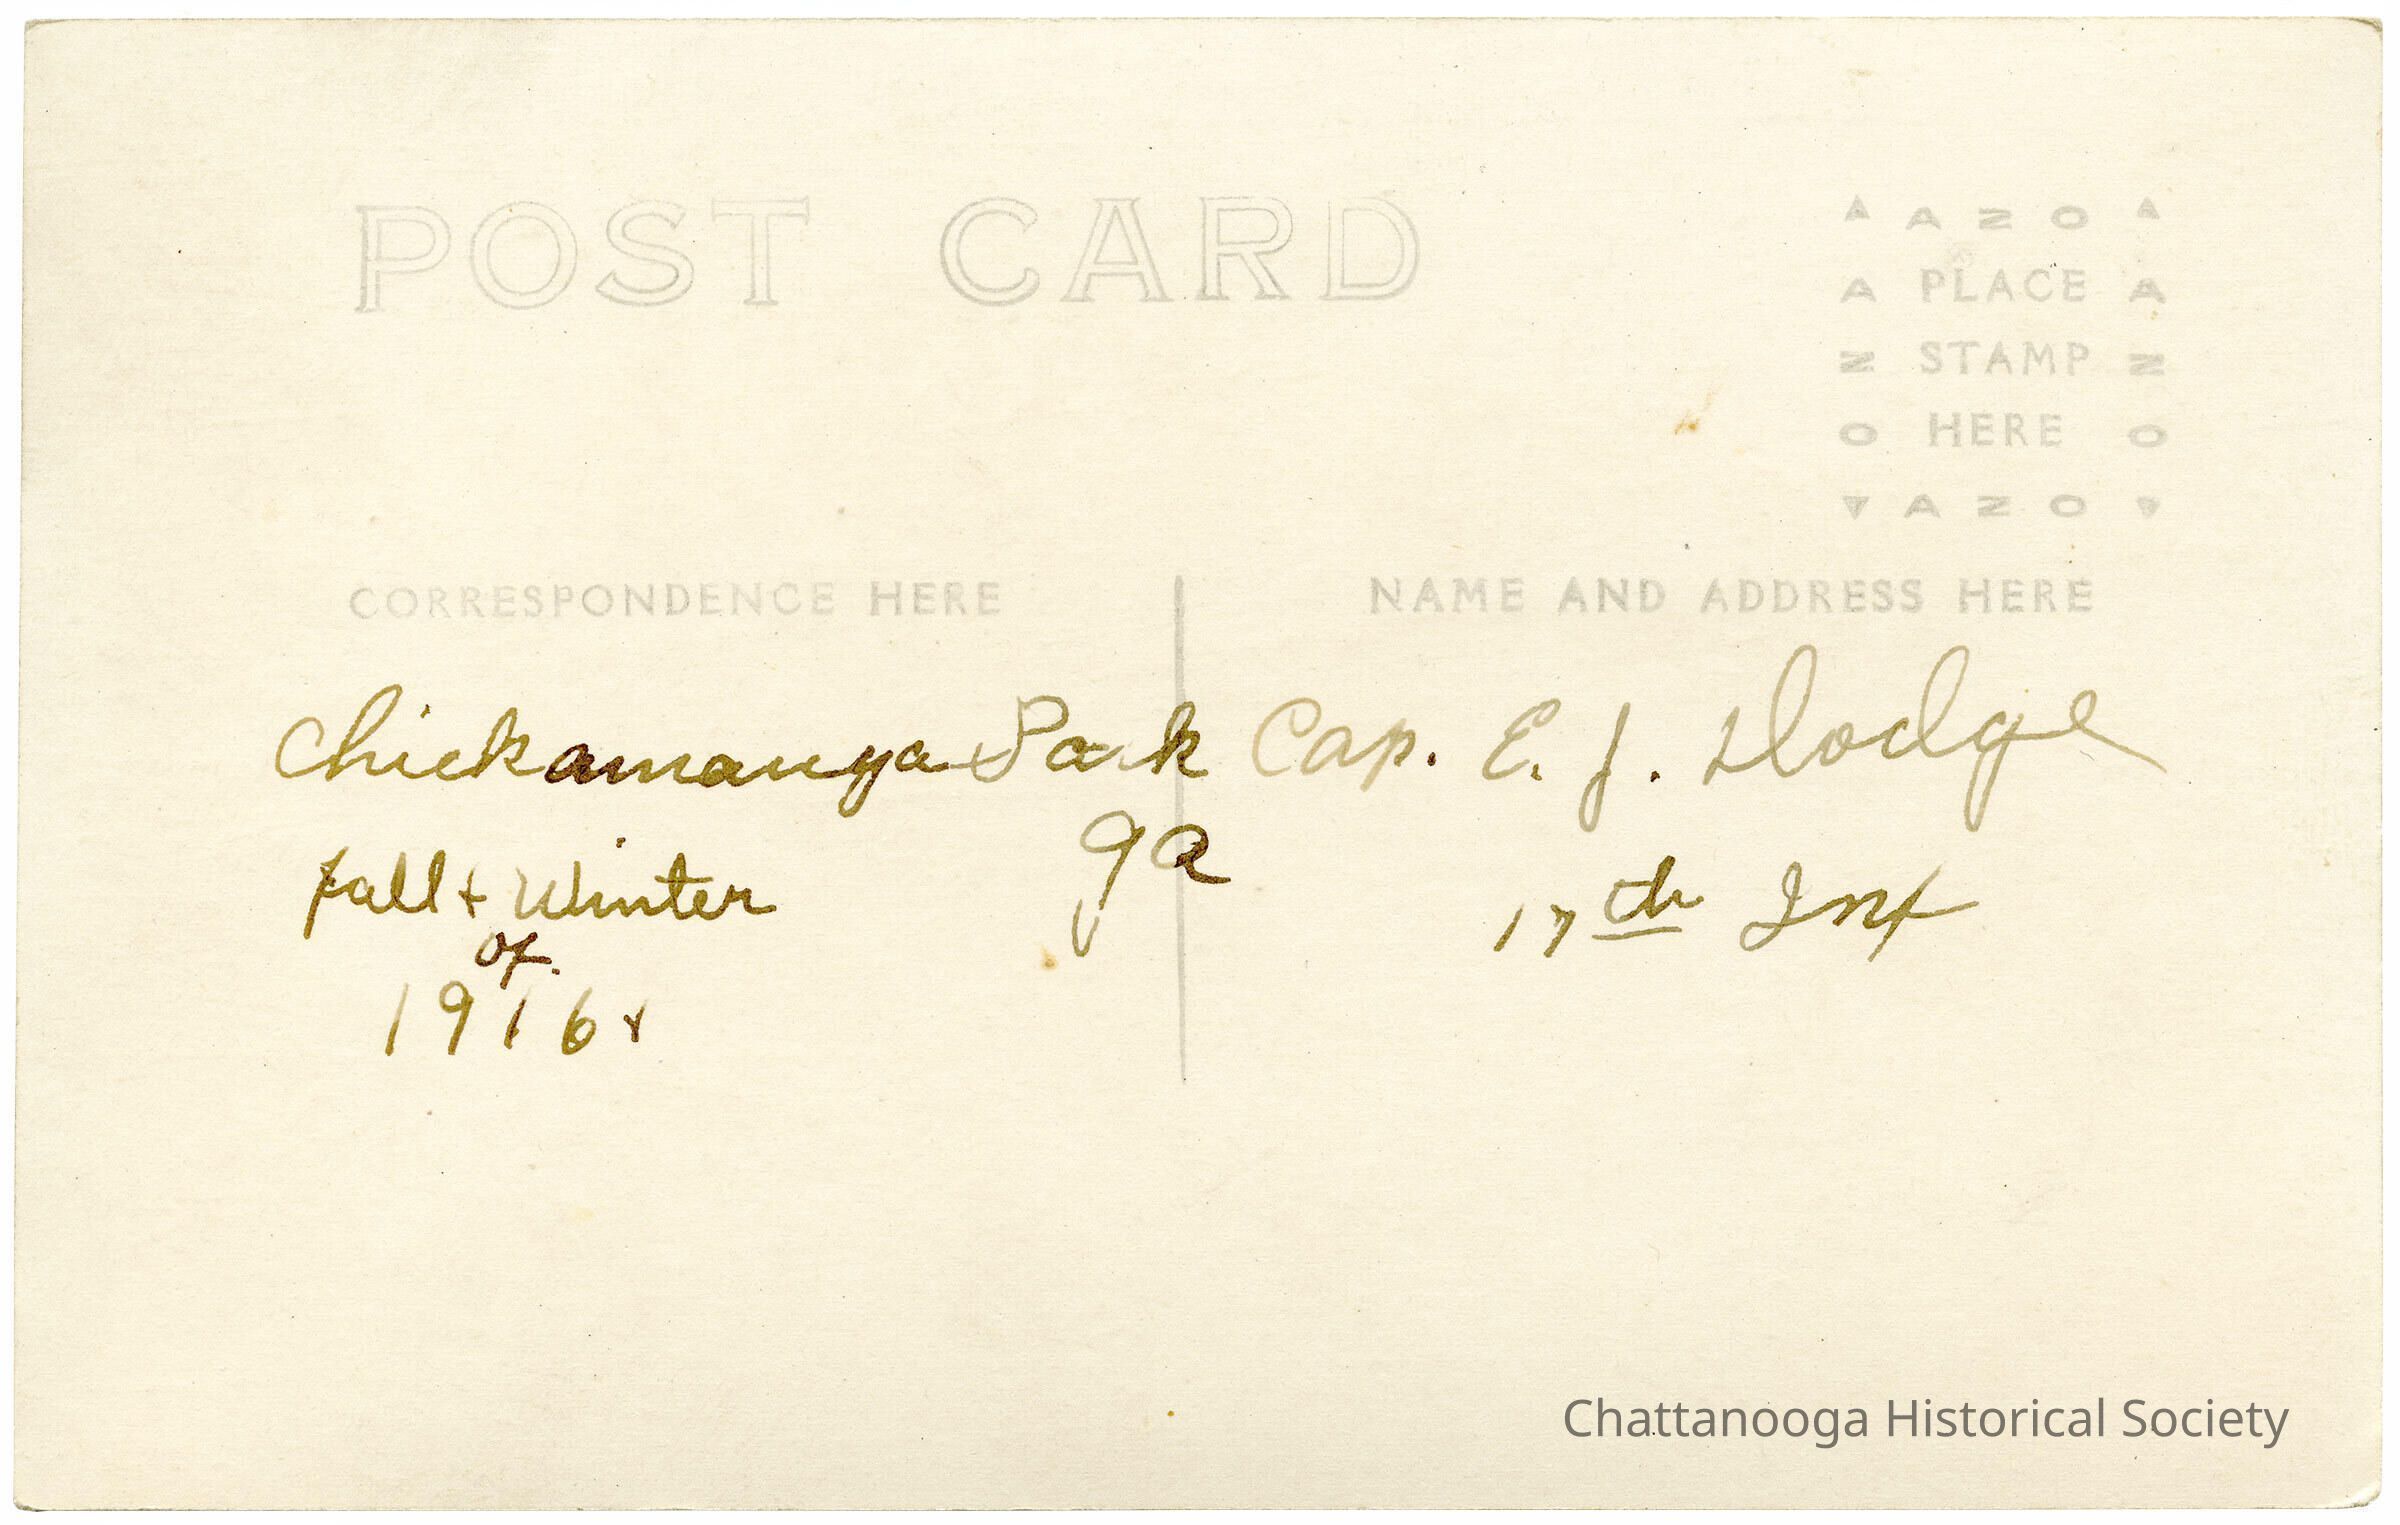 POST CARD
AZO
A PLACE A
Z STAMP Z
O HERE O
AZO
CORRESPONDENCE HERE
NAME AND ADDRESS HERE
Chickamauga Park
Ga
Fall + Winter
of.
1916.
Cap. E. J. Dodge
17th Inf
Chattanooga Historical Society